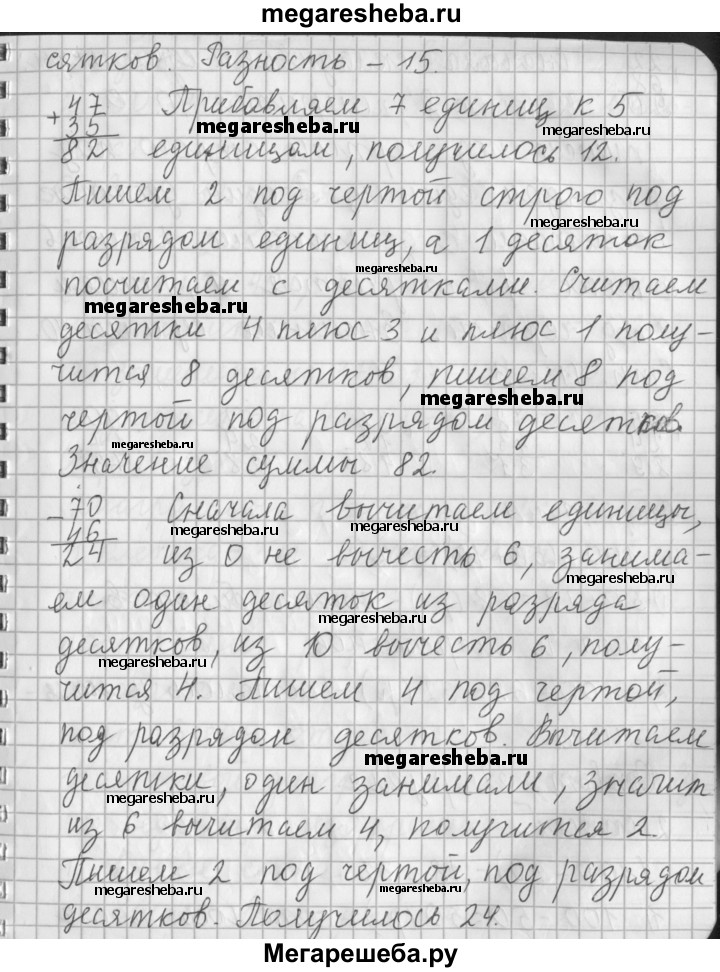 megaresheba.ru
сятков. Разность – 15.
47 Прибавляем 7 единиц к 5
+ 35 megaresheba.ru megaresheba.ru
82 единицам, получилось 12.
Пишем 2 под чертой строго под
megaresheba.ru
разрядом единиц, а 1 десяток
megaresheba.ru
посчитаем с десятками. Считаем
megaresheba.ru
десятки 4 плюс 3 и плюс 1 полу-
чится 8 десятков, пишем 8 под
megaresheba.ru
чертой под разрядом десятков.
megaresheba.ru
Значение суммы 82.
70 Сначала вычитаем единицы,
– 46 megaresheba.ru megaresheba.ru
24 из 0 не вычесть 6, занима-
megaresheba.ru
ем один десяток из разряда
megaresheba.ru
десятков, из 10 вычесть 6, полу-
megaresheba.ru
чится 4. Пишем 4 под чертой,
под разрядом десятков. Вычитаем
megaresheba.ru
десятки, один занимали, значит
megaresheba.ru
из 6 вычитаем 4, получится 2.
Пишем 2 под чертой, под разрядом
megaresheba.ru megaresheba.ru
десятков. Получилось 24.
Мегарешеба.ру